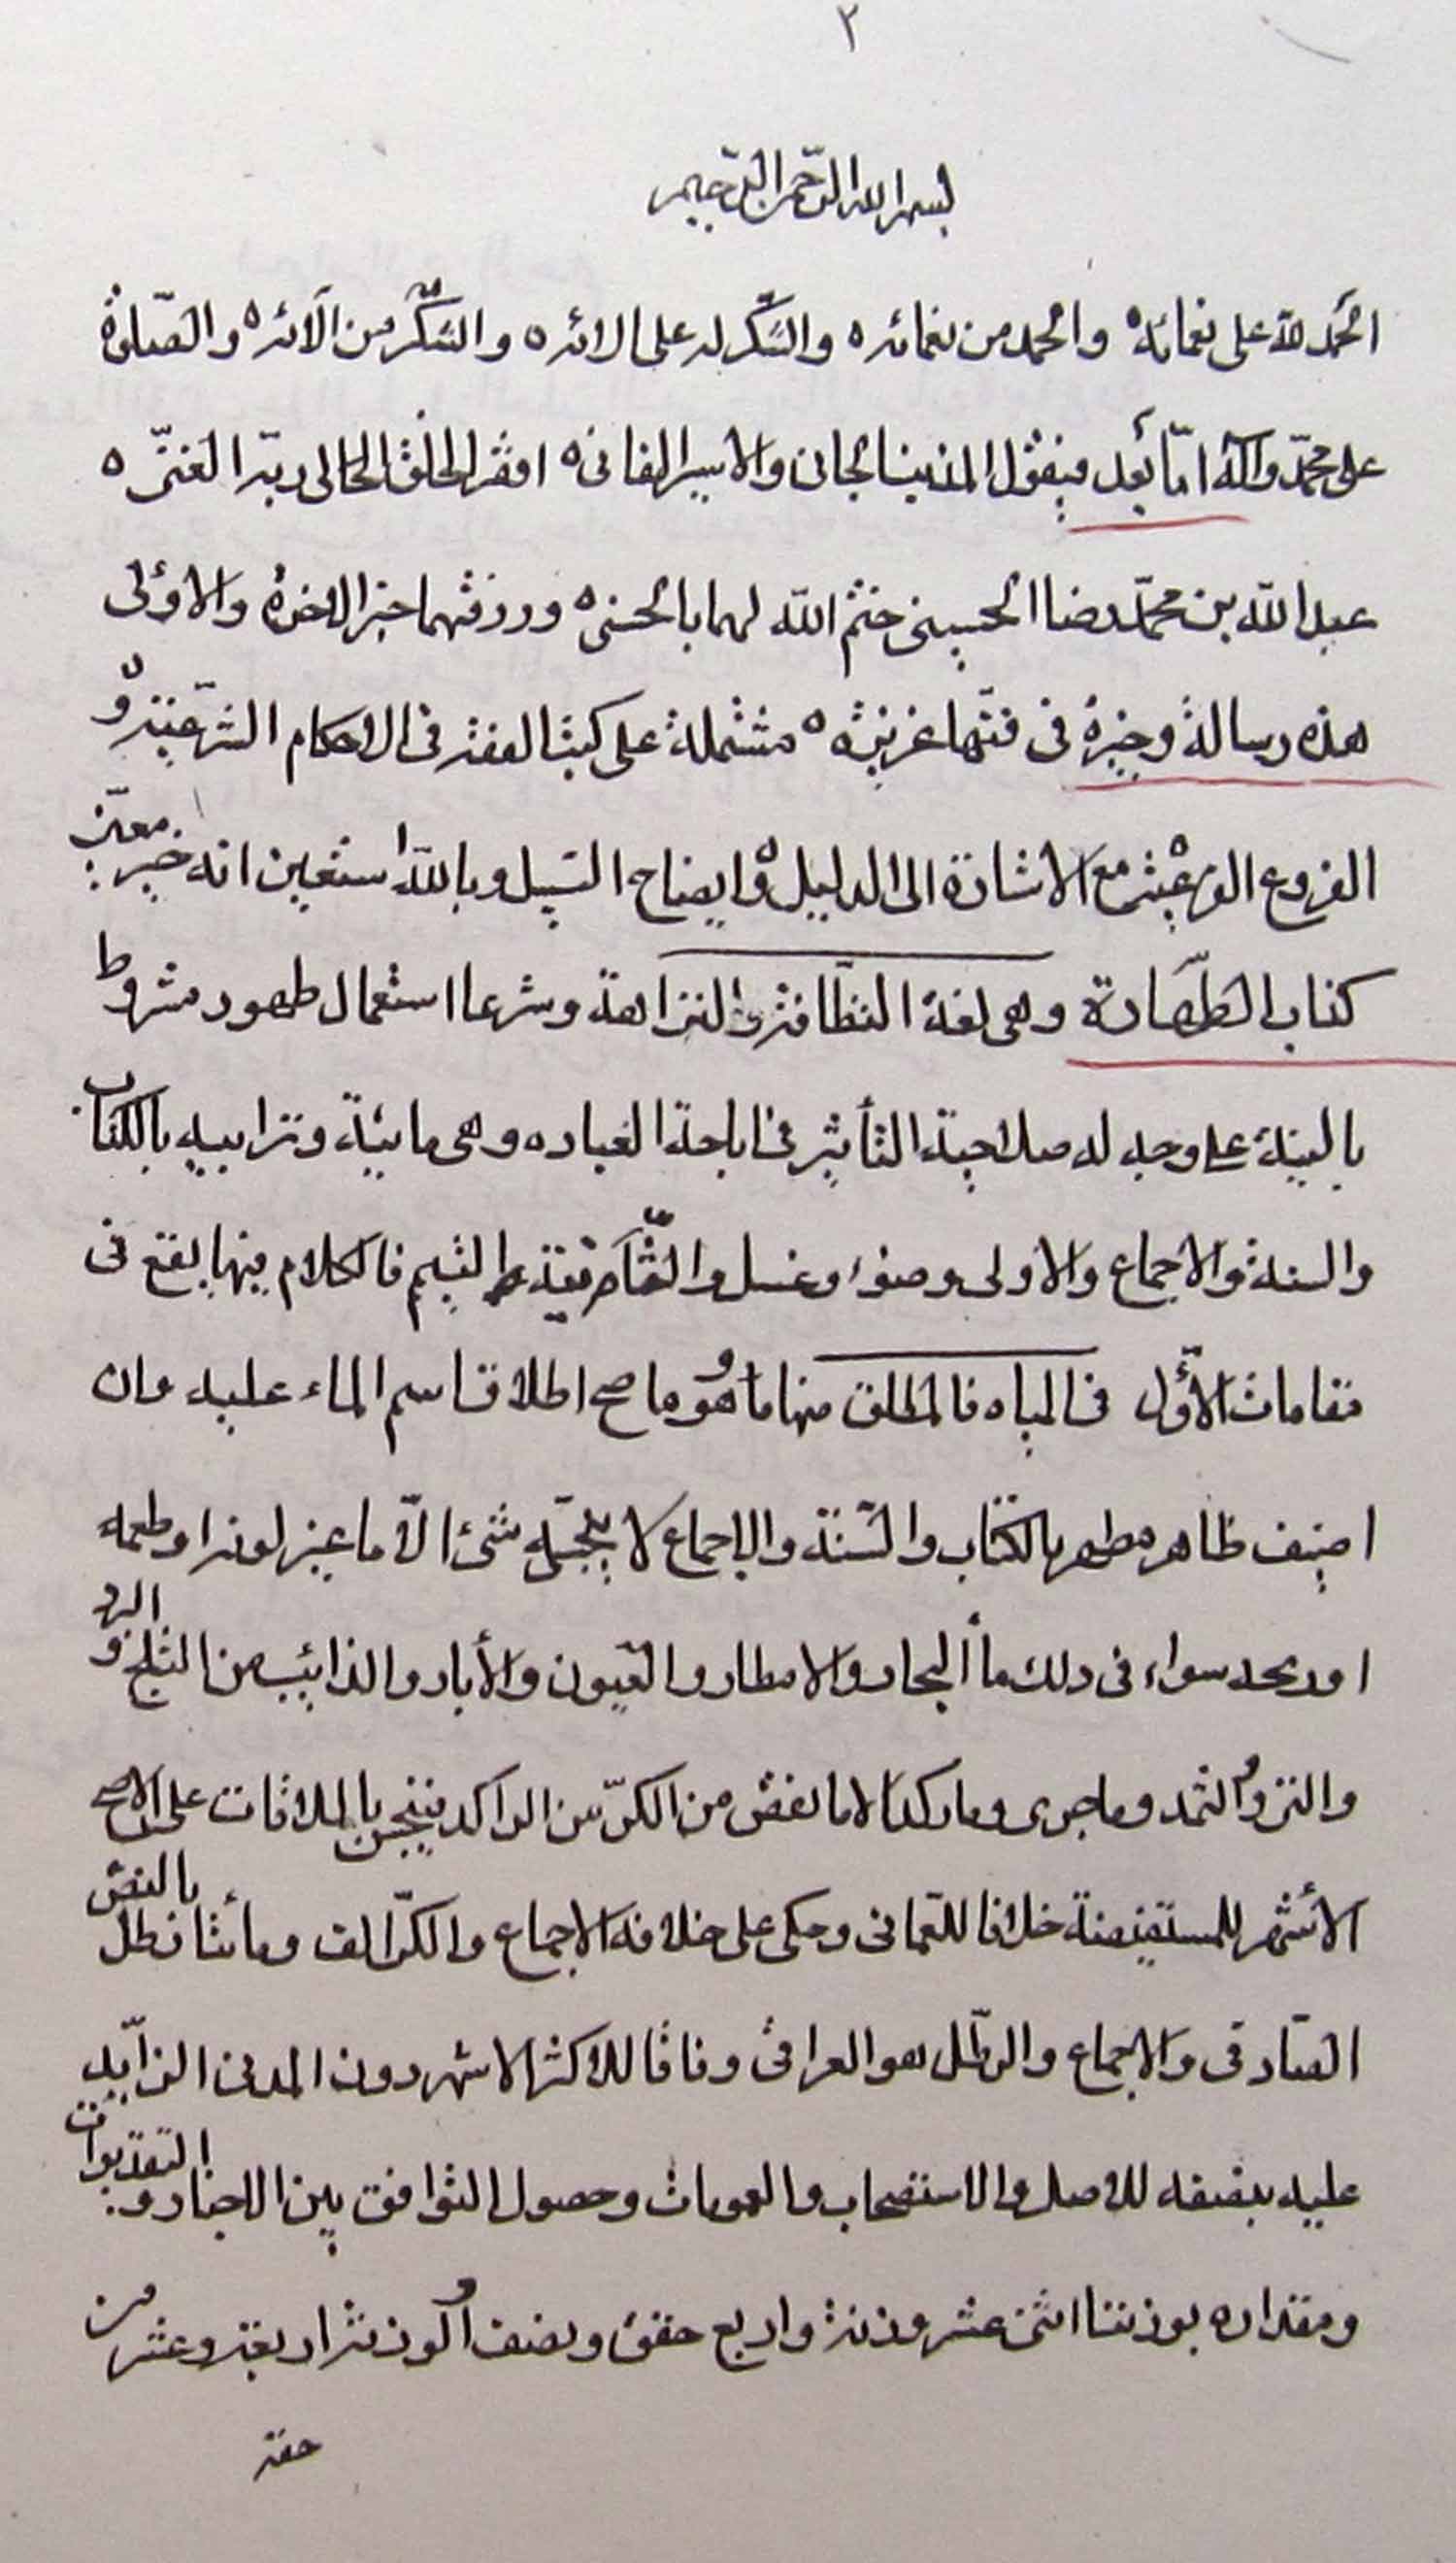 ٢
بسم الله الرحمن الرحيم
الحمد لله على نعمائه ه والحمد من نعمائه ه والشكر له على الائه ه والشكر من الآئه ه والصلوة
على محمد وآله اما بعد فيقول المذنب الجاني والاسير الفاني ه افقر الخلق الى ربه الغني ه
عبد الله بن محمد رضا الحسيني ختم الله لهما بالحسنى ه ورزقهما خير الاخرة والاولى
هذه رسالة وجيزة في فنها عزيزة ه مشتملة على كتب الفقه في الاحكام الشرعية و
الفروع الفرعية مع الاشارة الى الدليل ه وايضاح السبيل وبالله استعين انه خير معين
كتاب الطهارة وهي لغة النظافة والنزاهة وشرعا استعمال طهور مشروط
بالنية على وجه له صلاحية التأثير في اباحة العباده وهى مائية وترابيه بالكتاب
والسنة والاجماع والاولى وضوء وغسل والثانية التيمم فالكلام فيها يقع في
مقامات الأول في المياه فالمطلق منها ما هو ما صح اطلاق اسم الماء عليه وان
اضيف طاهر مطهر بالكتاب والسنة والاجماع لا ينجسه شئ الا ما غير لونه او طعمه
او ريحه سواء في ذلك ماأ البحار والامطار والعيون والأبار والذائب من الثلج والبرد
والنز والثمد وما جرى وما ركد الا ما نقص من الكر من الراكد فينجس بالملاقات على الاصح
الأشهر للمستفيضة خلافا للعماني وحكى على خلافه الاجماع والكر الف ومأتا رطل بالنص
الصادقى والاجماع والرطل هو العراقى وفاقا للاكثر الاشهر دون المدنى الزايد
عليه بنصفه للاصل والاستصحاب والعمومات وحصول التوافق بين الاخبار و التقديرات
ومقداره بوزننا اثنى عشر وزنة واربع حقق ونصف اذ الوزنة اربعة وعشرون
حقة